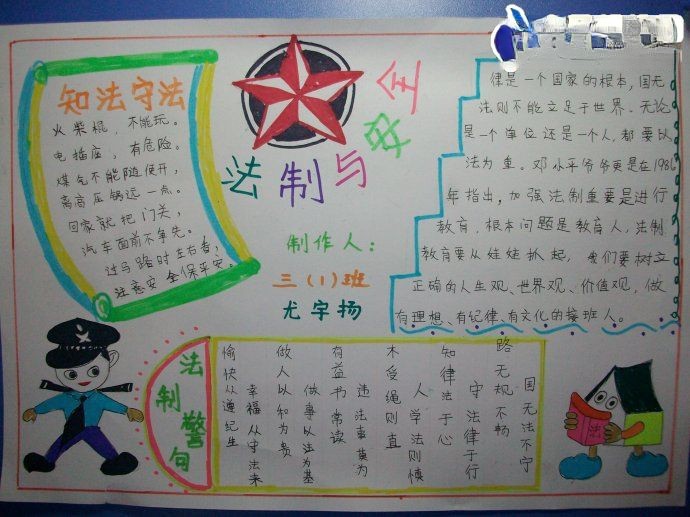 知法守法
火柴棍，不能玩。
电插座，有危险。
煤气不能随便开，
离高压锅远一点。
回家就把门关，
汽车面前不争先。
过马路时左右看，
注意安全保平安。
法制与安全
制作人：
三（1）班
尤宇扬
律是一个国家的根本，国无
法则不能立足于世界。无论
是一个单位还是一个人，都要以
法为重。邓小平爷爷更是在1986
年指出，加强法制重要是进行
教育，根本问题是教育人，法制
教育要从娃娃抓起，我们要树立
正确的人生观、世界观、价值观，做
有理想、有纪律、有文化的接班人。
法制警句
国无法不宁
路无规不畅
守法律于行
知律法于心
人学法则慎
木受绳则直
违法事莫为
有益书常读
做事以法为基
做人以和为贵
幸福从守法来
愉快从遵纪生
法